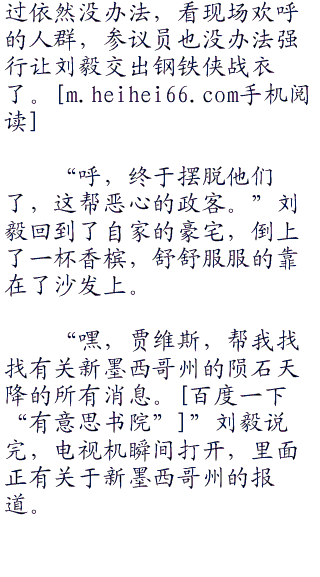 过依然没办法，看现场欢呼
的人群，参议员也没办法强
行让刘毅交出钢铁侠战衣
了。[m.heihei66.com手机阅
读]
“呼，终于摆脱他们
了，这帮恶心的政客。”刘
毅回到了自家的豪宅，倒上
了一杯香槟，舒舒服服的靠
在了沙发上。
“嘿，贾维斯，帮我找
找有关新墨西哥州的陨石天
降的所有消息。[百度一下
“有意思书院”]”刘毅说
完，电视机瞬间打开，里面
正有关于新墨西哥州的报
道。